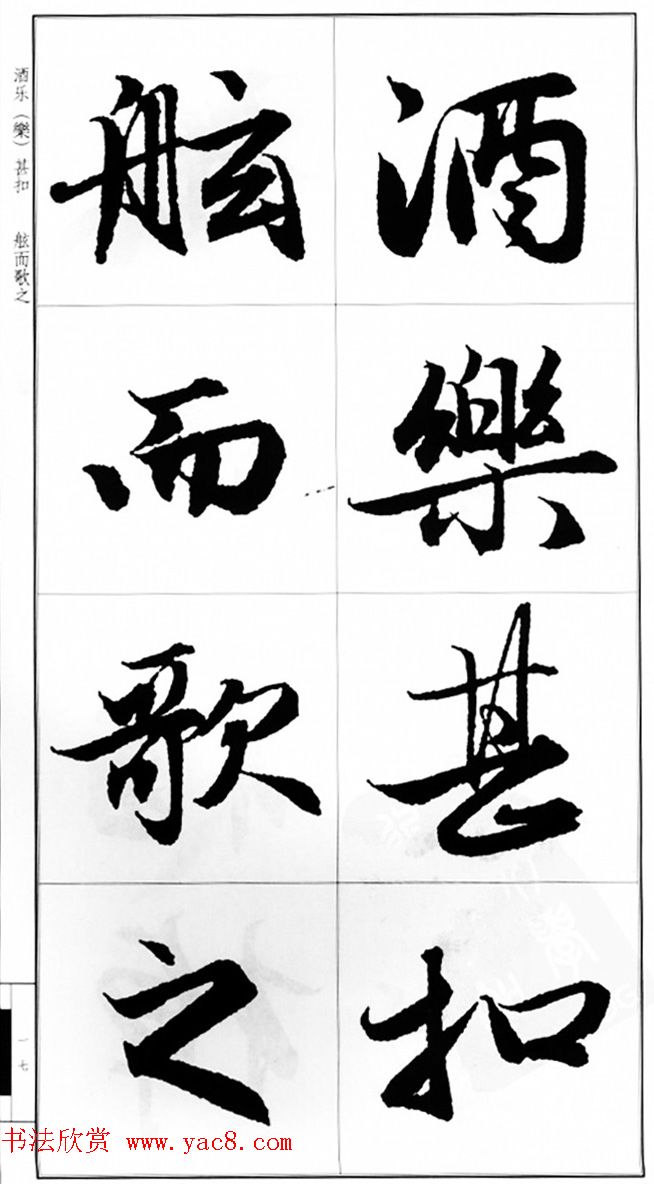 酒樂甚扣
舷而歌之
酒乐（樂）甚扣 舷而歌之
一七
书法欣赏 www.yac8.com